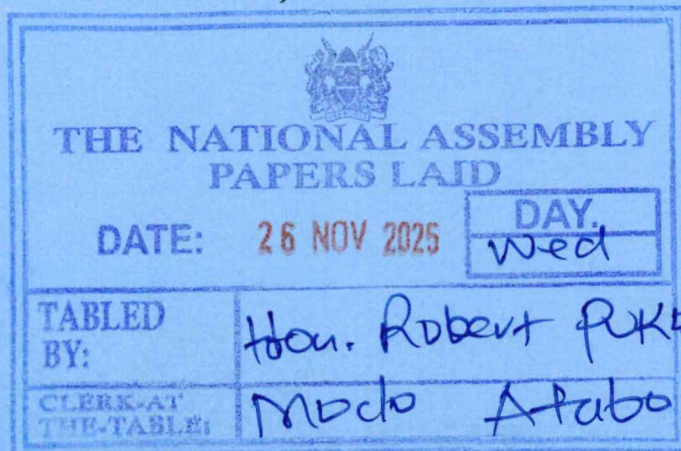 THE NATIONAL ASSEMBLY
PAPERS LAID
DATE: 26 NOV 2025
DAY.
Wed
TABLED
BY:
Hon. Robert
CLERK-AT
THE-TABLE: